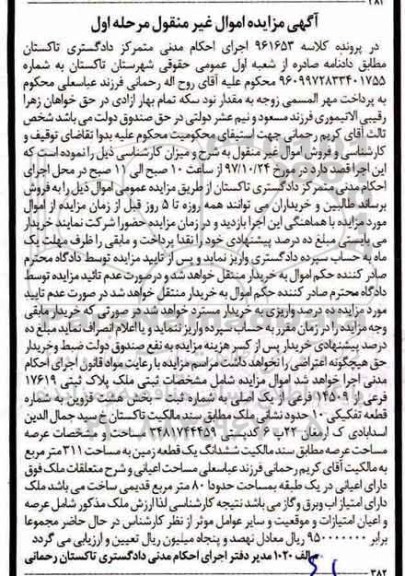 ۳۸۱
آگهی مزایده اموال غیر منقول مرحله اول
در پرونده کلاسه ۹۶۱۶۵۳ اجرای احکام مدنی متمرکز دادگستری تاکستان
مطابق دادنامه صادره از شعبه اول عمومی حقوقی شهرستان تاکستان به شماره
۹۶۰۹۹۷۲۸۳۳۴۰۱۷۵۵ محکوم علیه آقای روح اله رحمانی فرزند عباسعلی محکوم
به پرداخت مهر المسمی زوجه به مقدار نود سکه تمام بهار ازادی در حق خواهان زهرا
رقیبی الاتیموری فرزند مسعود و نیم عشر دولتی در حق صندوق دولت می باشد شخص
ثالث آقای کریم رحمانی جهت استیفای محکومیت محکوم علیه بدوا تقاضای توقیف و
کارشناسی و فروش اموال غیر منقول به شرح و میزان کارشناسی ذیل را نموده است که
این اجرا قصد دارد در مورخ ۹۷/۱۰/۲۴ از ساعت ۱۰ صبح الی ۱۱ صبح در محل اجرای
احکام مدنی متمرکز دادگستری تاکستان از طریق مزایده عمومی اموال ذیل را به فروش
برساند طالبین و خریداران می توانند همه روزه تا ۵ روز قبل از زمان مزایده از اموال
مورد مزایده با هماهنگی این اجرا بازدید و در زمان مزایده حضورا شرکت نمایند خریدار
می بایستی مبلغ ده درصد پیشنهادی خود را نقدا پرداخت و مابقی را ظرف مهلت یک
ماه به حساب سپرده دادگستری واریز نماید و پس از تایید مزایده توسط دادگاه محترم
صادر کننده حکم اموال به خریدار منتقل خواهد شد و در صورت عدم تائید مزایده توسط
دادگاه محترم صادر کننده حکم اموال به خریدار منتقل خواهد شد در صورت عدم تایید
مورد مزایده ده درصد واریزی به خریدار مسترد خواهد شد در صورتی که خریدار مابقی
وجه مزایده را در زمان مقرر به حساب سپرده واریز ننماید و یا اعلام انصراف نماید مبلغ ده
درصد پیشنهادی خریدار پس از کسر هزینه مزایده به نفع صندوق دولت ضبط و خریدار
حق هیچگونه اعتراضی را نخواهد داشت مراسم مزایده با رعایت مواد قانون اجرای احکام
مدنی اجرا خواهد شد اموال مزایده شامل مشخصات ثبتی ملک پلاک ثبتی ۱۷۶۱۹
فرعی از ۱۴۵۰۹ فرعی از یک اصلی به شماره ثبت - بخش هشت قزوین به شماره
قطعه تفکیکی ۱۰ حدود نشانی ملک مطابق سند مالکیت تاکستان خ سید جمال الدین
اسدابادی ک ارمغان ۲۲پ ۶۳ کدپستی ۳۴۸۱۷۴۴۴۵۹ مساحت و مشخصات عرصه
مساحت عرصه مطابق سند مالکیت ششدانگ یک قطعه زمین به مساحت ۳۱۱ متر مربع
به مالکیت آقای کریم رحمانی فرزند عباسعلی مساحت اعیانی و شرح متعلقات ملک فوق
دارای اعیانی در یک طبقه بمساحت حدودا ۸۰ متر مربع قدیمی ساخت می باشد ملک
دارای امتیاز اب وبرق و گاز می باشد نتیجه کارشناسی لذا ارزش ملک مذکور شامل عرصه
و اعیان امتیازات و موقعیت و سایر عوامل موثر از نظر کارشناس در حال حاضر مجموعا
برابر ۹۵۰۰۰۰۰۰۰ ریال معادل نهصد و پنجاه میلیون ریال تعیین و ارزیابی می گردد
م الف ۱۰۲۰ مدیر دفتر اجرای احکام مدنی دادگستری تاکستان رحمانی
۳۸۲